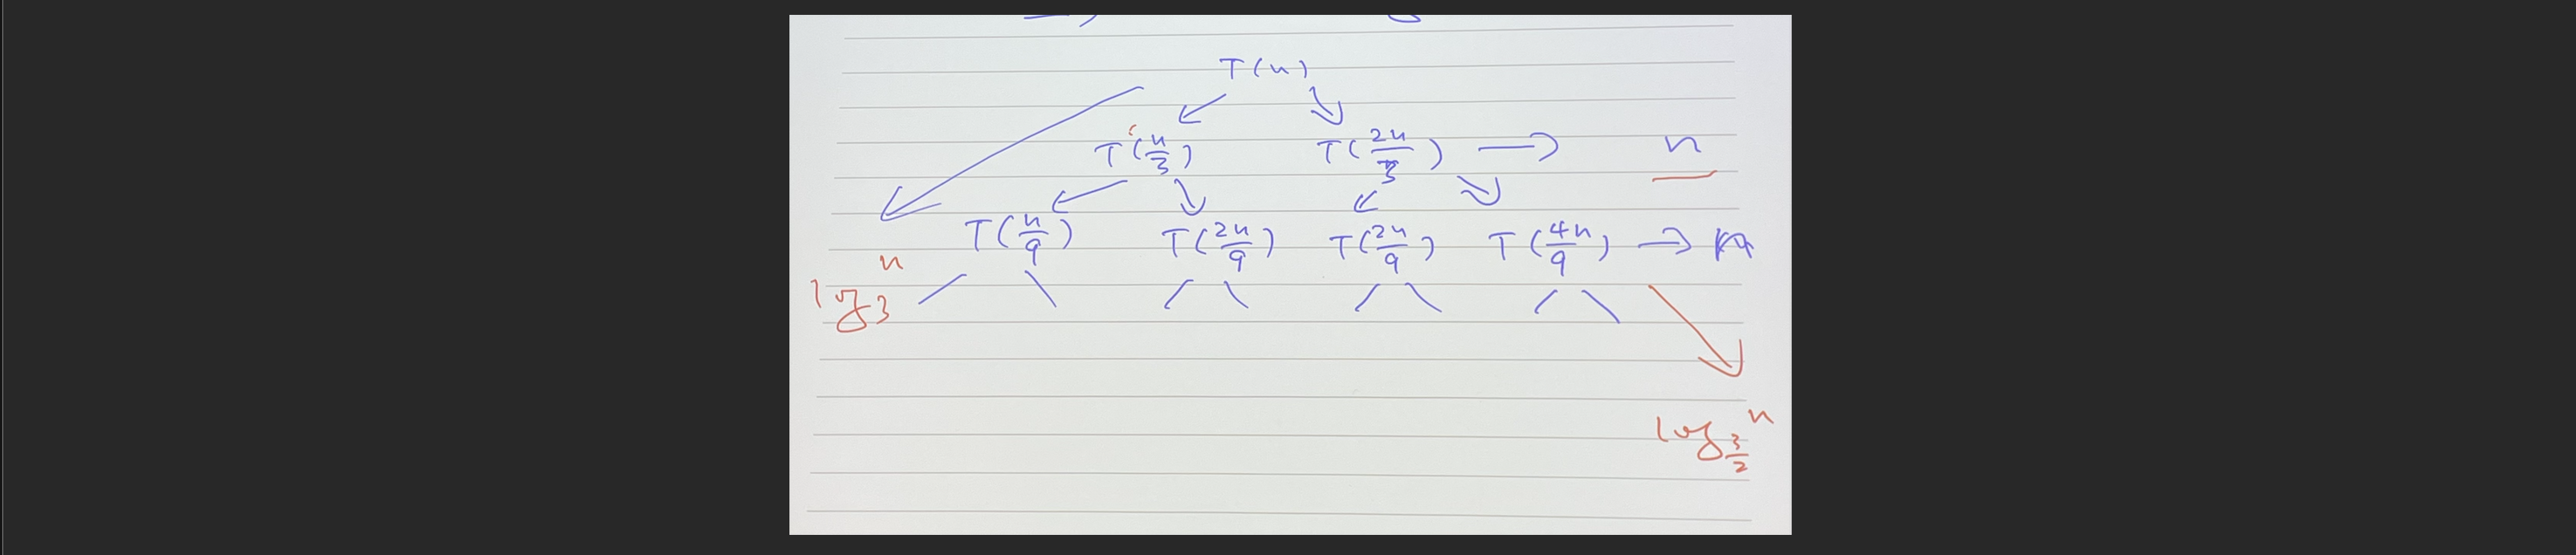 T(n)
T(n/3) T(2n/3) → n
T(n/9) T(2n/9) T(2n/9) T(4n/9) →
log₃ n
log_{3/2} n